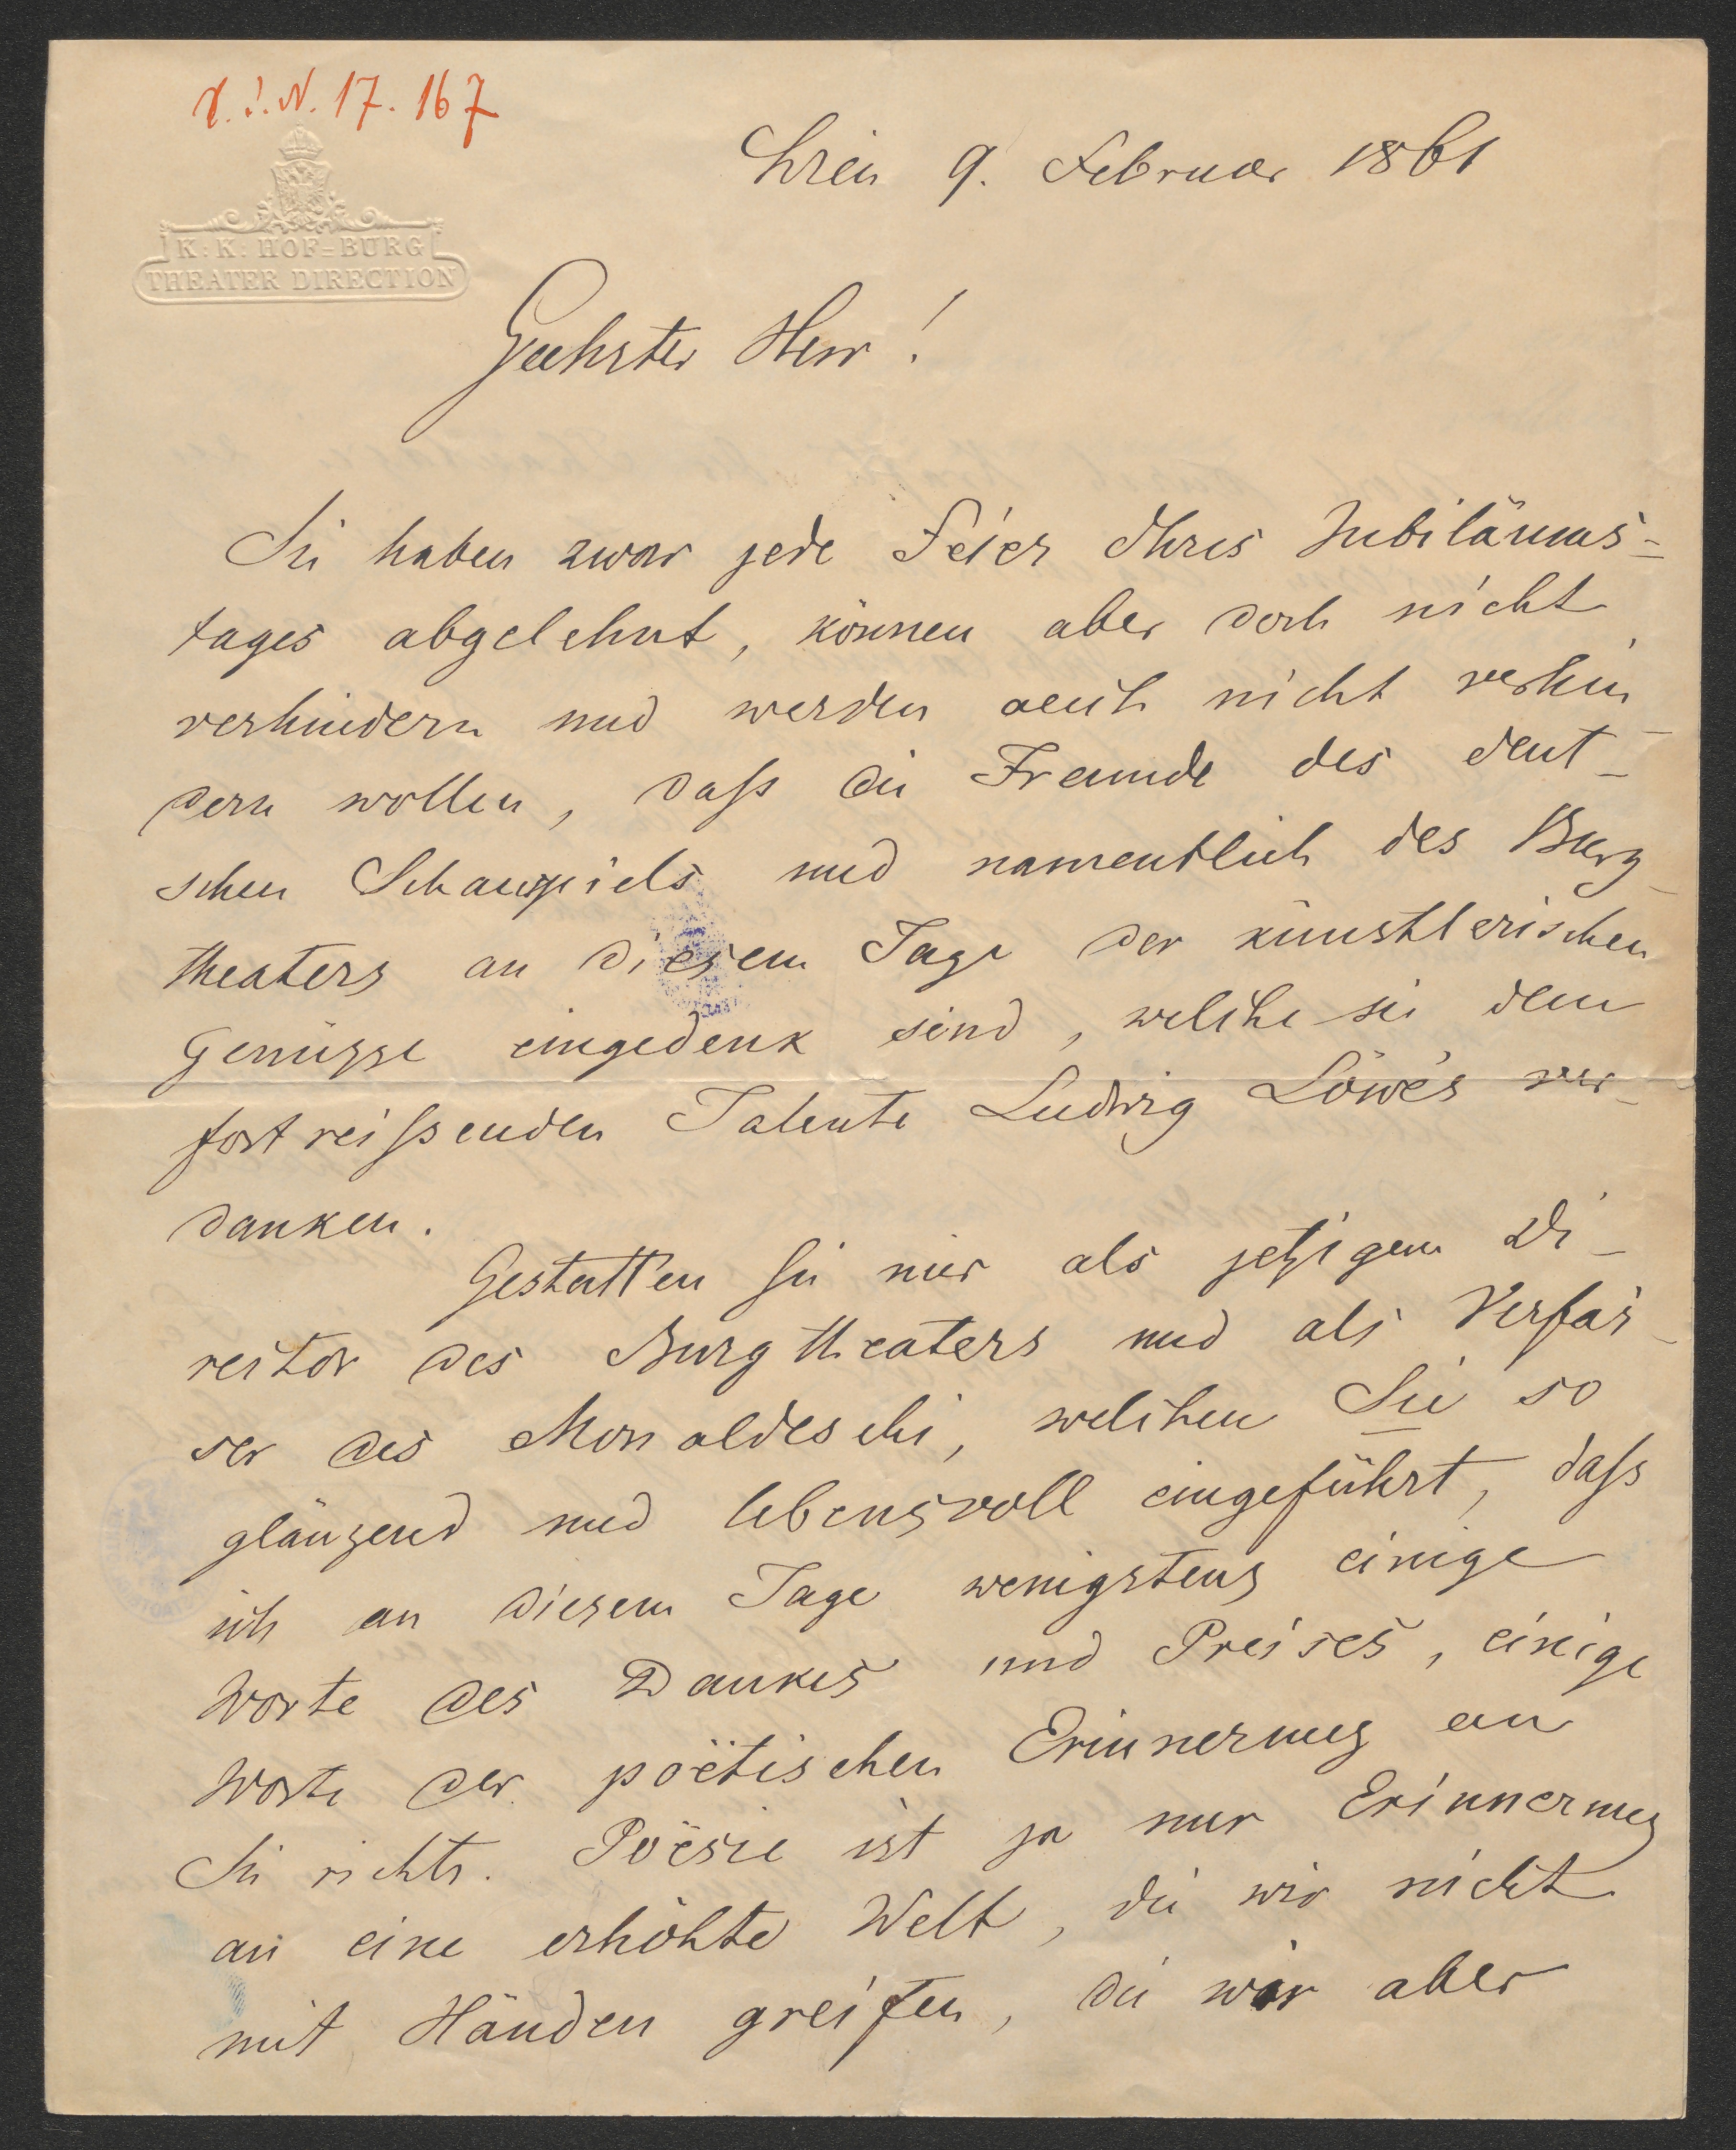 I. N. 17.167
K: K: HOF=BURG
THEATER DIRECTION
Wien 9. Februar 1861
Geehrter Herr!
Sie haben zwar jede Feier Ihres Jubiläums=
tages abgelehnt, können aber doch nicht
verhindern und werden auch nicht verhin
dern wollen, daß die Freunde des deut-
schen Schauspiels und namentlich des Burg-
theaters an diesem Tage der künstlerischen
Genüsse eingedenk sind, welche sie dem
fortreißenden Talente Ludwig Löwe's ver-
danken.
Gestatten Sie mir als jetzigem Di-
rector des Burgtheaters und als Verfas-
ser des Monaldeschi, welchen Sie so
glänzend und lebensvoll eingeführt, daß
ich an diesem Tage wenigstens einige
Worte des Dankes und Preises, einige
Worte der poëtischen Erinnerung an
Sie richte. Poësie ist ja nur Erinnerung
an eine erhöhte Welt, die wir nicht
mit Händen greifen, die wir aber